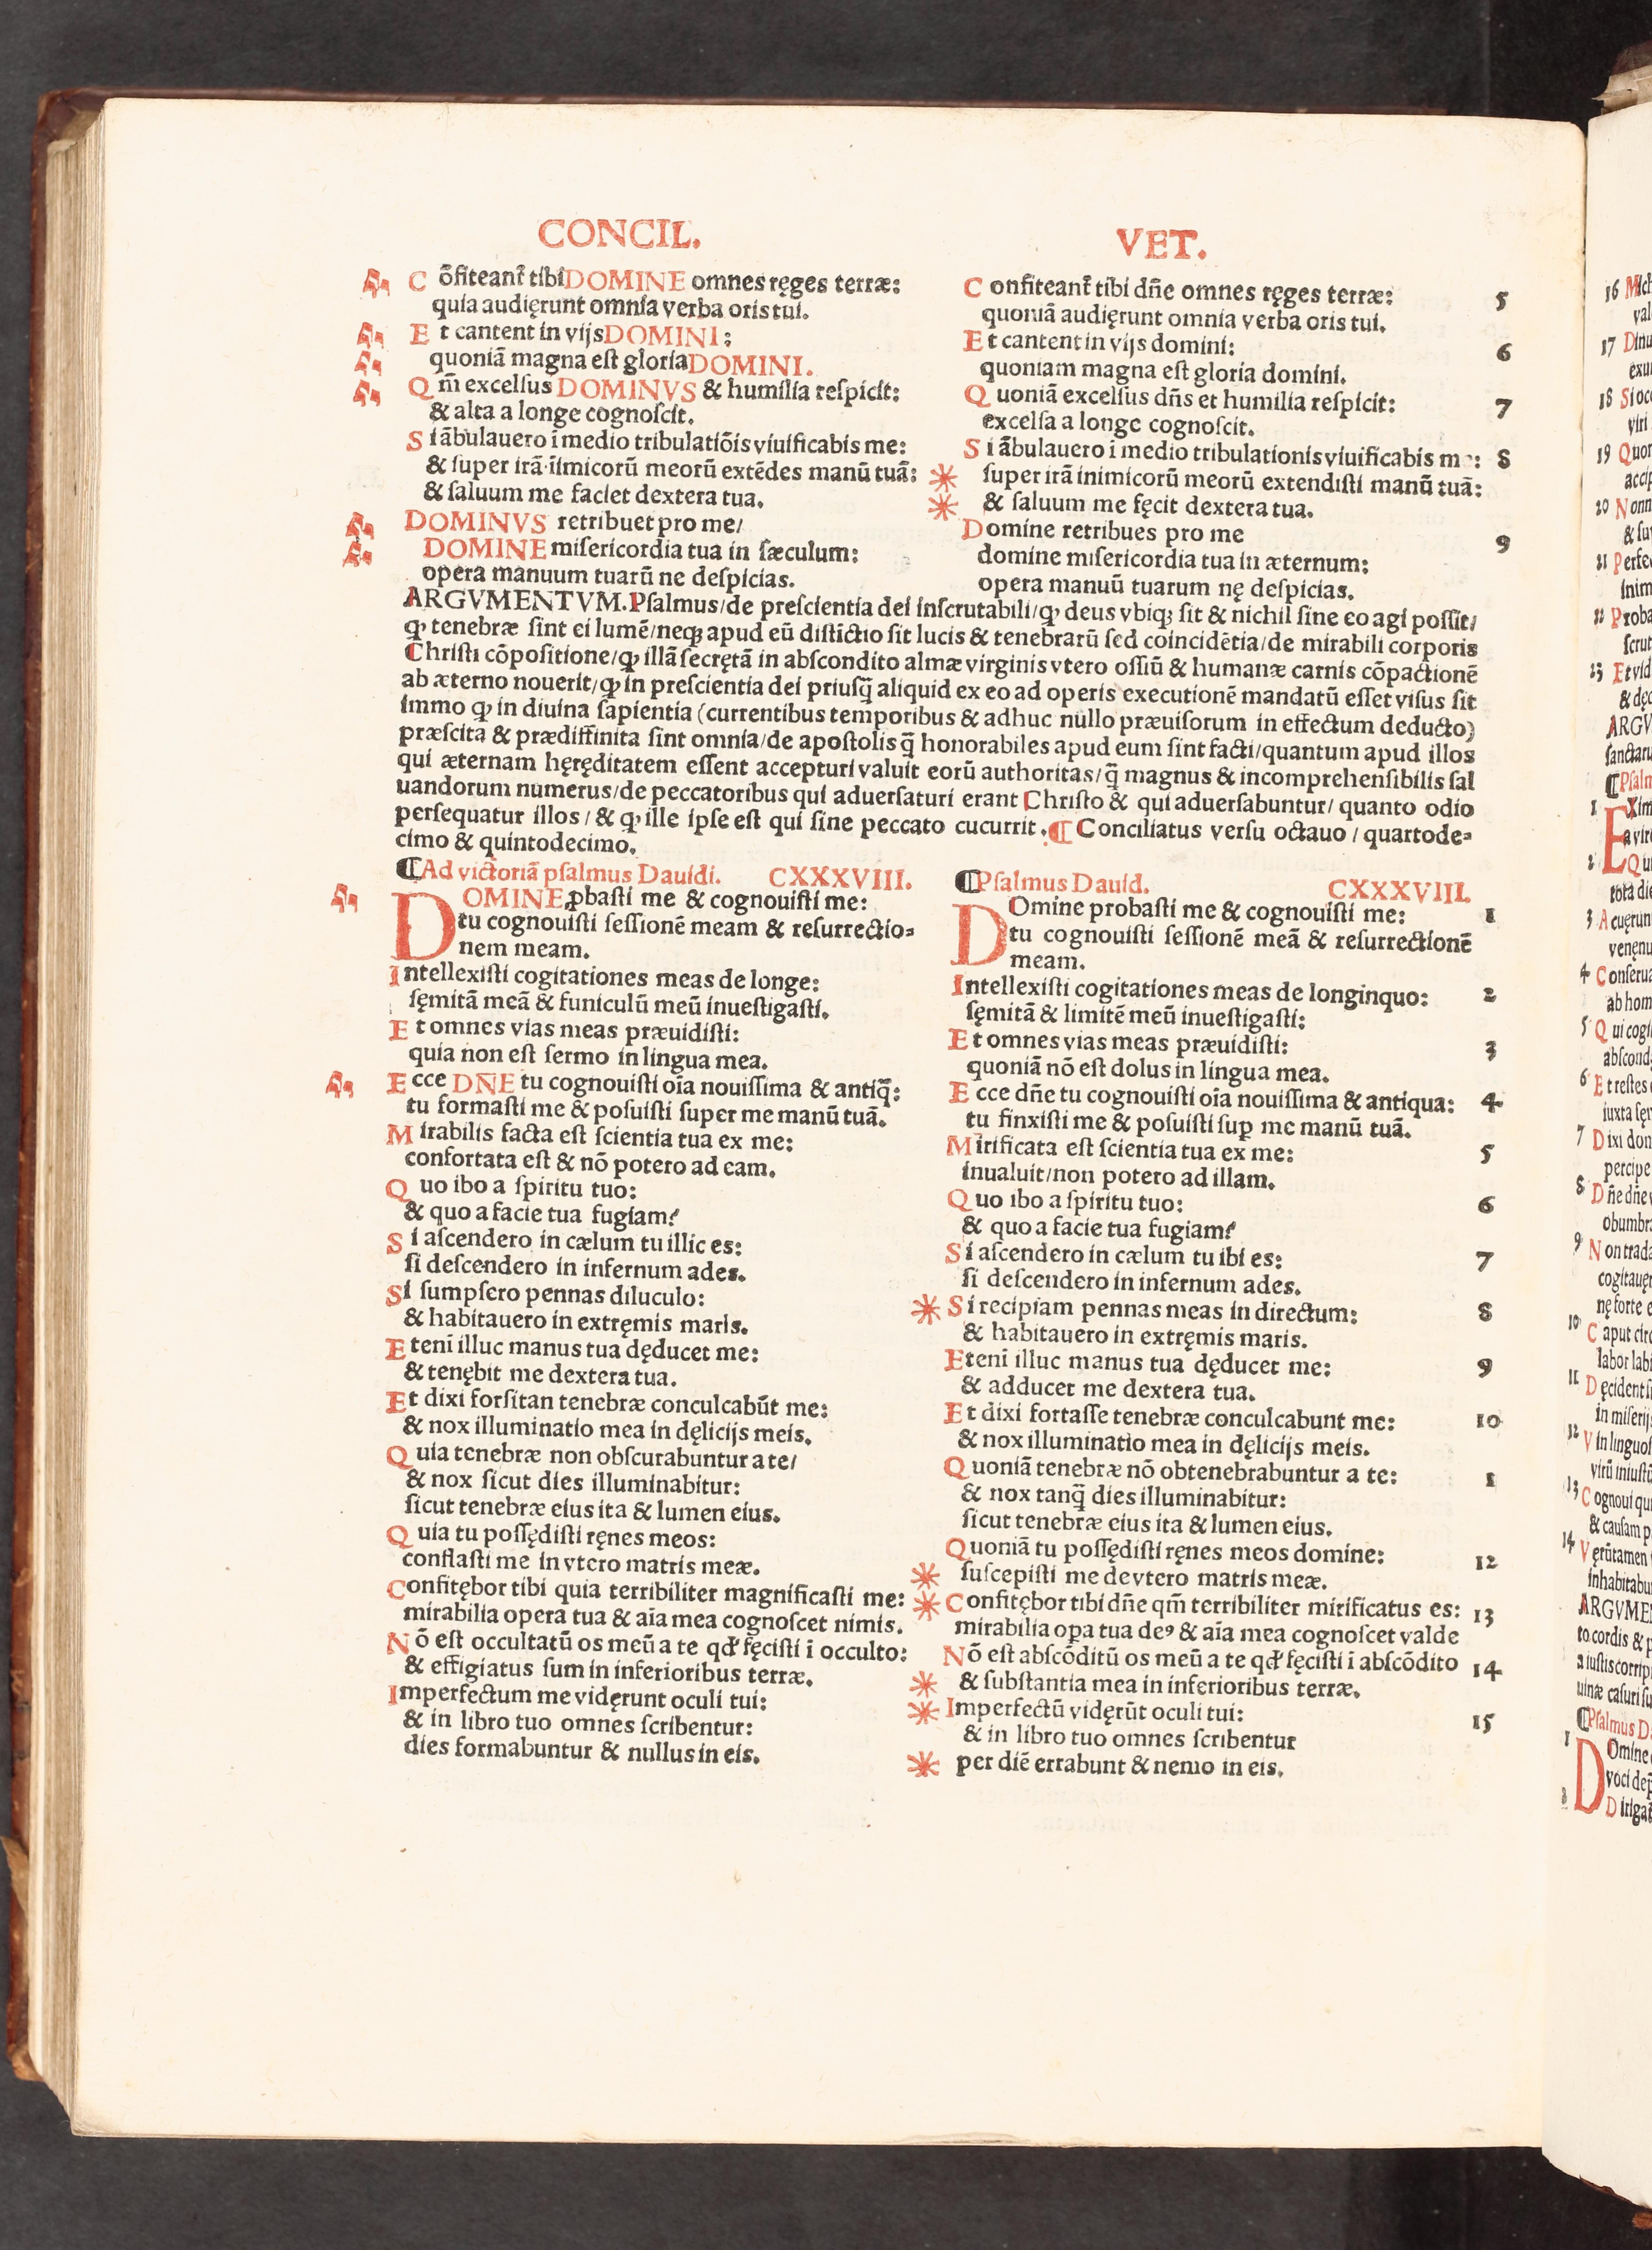 CONCIL.
Cõfiteant᷑ tibi DOMINE omnes ręges terræ:
quia audięrunt omnia verba oris tui.
Et cantent in vijs DOMINI:
quoniã magna eſt gloria DOMINI.
Qm̃ excelſus DOMINVS & humilia reſpicit:
& alta a longe cognoſcit.
Si ãbulauero ĩ medio tribulatiõis viuificabis me:
& ſuper irã ĩimicorũ meorũ extẽdes manũ tuã:
& ſaluum me faciet dextera tua.
DOMINVS retribuet pro me/
DOMINE miſericordia tua in ſæculum:
opera manuum tuarũ ne deſpicias.
VET.
Confiteant᷑ tibi dñe omnes ręges terræ: 5
quoniã audięrunt omnia verba oris tui.
Et cantent in vijs domini: 6
quoniam magna eſt gloria domini.
Quoniã excelſus dñs et humilia reſpicit: 7
excelſa a longe cognoſcit.
Si ãbulauero ĩ medio tribulationis viuificabis me: 8
ſuper irã inimicorũ meorũ extendiſti manũ tuã:
& ſaluum me fęcit dextera tua.
Domine retribues pro me 9
domine miſericordia tua in æternum:
opera manuũ tuarum nę deſpicias.
ARGVMENTVM. Pſalmus/de preſcientia dei inſcrutabili/ꝙ deus vbiqꝫ ſit & nichil ſine eo agi poſſit/
ꝙ tenebræ ſint ei lumẽ/neqꝫ apud eũ diſtictio ſit lucis & tenebrarũ ſed coincidẽtia/de mirabili corporis
Chriſti cõpoſitione/ꝙ illã ſecrętã in abſcondito almæ virginis vtero oſſiũ & humanæ carnis cõpactionẽ
ab æterno nouerit/ꝙ in preſcientia dei priuſq̃ aliquid ex eo ad operis executionẽ mandatũ eſſet viſus ſit
immo ꝙ in diuina ſapientia (currentibus temporibus & adhuc nullo præuiſorum in effectum deducto)
præſcita & prædiffinita ſint omnia/de apoſtolis q̃ honorabiles apud eum ſint facti/quantum apud illos
qui æternam hęręditatem eſſent accepturi valuit eorũ authoritas/q̃ magnus & incomprehenſibilis ſal
uandorum numerus/de peccatoribus qui aduerſaturi erant Chriſto & qui aduerſabuntur/ quanto odio
perſequatur illos / & ꝙ ille ipſe eſt qui ſine peccato cucurrit. ¶ Conciliatus verſu octauo / quartode⸗
cimo & quintodecimo.
¶Ad victoriã pſalmus Dauidi. CXXXVIII.
DOMINE ꝓbaſti me & cognouiſti me:
tu cognouiſti ſeſſionẽ meam & reſurrectio⸗
nem meam.
Intellexiſti cogitationes meas de longe:
ſęmitã meã & funiculũ meũ inueſtigaſti.
Et omnes vias meas præuidiſti:
quia non eſt ſermo in lingua mea.
Ecce DÑE tu cognouiſti oĩa nouiſſima & antiq̃:
tu formaſti me & poſuiſti ſuper me manũ tuã.
Mirabilis facta eſt ſcientia tua ex me:
confortata eſt & nõ potero ad eam.
Quo ibo a ſpiritu tuo:
& quo a facie tua fugiam?
Si aſcendero in cælum tu illic es:
ſi deſcendero in infernum ades.
Si ſumpſero pennas diluculo:
& habitauero in extręmis maris.
Etenĩ illuc manus tua dęducet me:
& tenębit me dextera tua.
Et dixi forſitan tenebræ conculcabũt me:
& nox illuminatio mea in dęlicijs meis.
Quia tenebræ non obſcurabuntur a te/
& nox ſicut dies illuminabitur:
ſicut tenebræ eius ita & lumen eius.
Quia tu poſſędiſti ręnes meos:
conflaſti me in vtero matris meæ.
Confitębor tibi quia terribiliter magnificaſti me:
mirabilia opera tua & aĩa mea cognoſcet nimis.
Nõ eſt occultatũ os meũ a te qđ fęciſti ĩ occulto:
& effigiatus ſum in inferioribus terræ.
Imperfectum me vidęrunt oculi tui:
& in libro tuo omnes ſcribentur:
dies formabuntur & nullus in eis.
¶Pſalmus Dauid. CXXXVIII.
DOmine probaſti me & cognouiſti me: 1
tu cognouiſti ſeſſionẽ meã & reſurrectionẽ
meam.
Intellexiſti cogitationes meas de longinquo: 2
ſęmitã & limitẽ meũ inueſtigaſti:
Et omnes vias meas præuidiſti: 3
quoniã nõ eſt dolus in lingua mea.
Ecce dñe tu cognouiſti oĩa nouiſſima & antiqua: 4
tu finxiſti me & poſuiſti ſuꝑ me manũ tuã.
Mirificata eſt ſcientia tua ex me: 5
inualuit/non potero ad illam.
Quo ibo a ſpiritu tuo: 6
& quo a facie tua fugiam?
Si aſcendero in cælum tu ibi es: 7
ſi deſcendero in infernum ades.
Si recipiam pennas meas in directum: 8
& habitauero in extręmis maris.
Etenĩ illuc manus tua dęducet me: 9
& adducet me dextera tua.
Et dixi fortaſſe tenebræ conculcabunt me: 10
& nox illuminatio mea in dęlicijs meis.
Quoniã tenebræ nõ obtenebrabuntur a te: 1
& nox tanq̃ dies illuminabitur:
ſicut tenebræ eius ita & lumen eius.
Quoniã tu poſſędiſti ręnes meos domine: 12
ſuſcepiſti me de vtero matris meæ.
Confitębor tibi dñe qm̃ terribiliter mirificatus es: 13
mirabilia oꝑa tua deꝰ & aĩa mea cognoſcet valde
Nõ eſt abſcõditũ os meũ a te qđ fęciſti ĩ abſcõdito 14
& ſubſtantia mea in inferioribus terræ.
Imperfectũ vidęrũt oculi tui: 15
& in libro tuo omnes ſcribentur
per diẽ errabunt & nemo in eis.